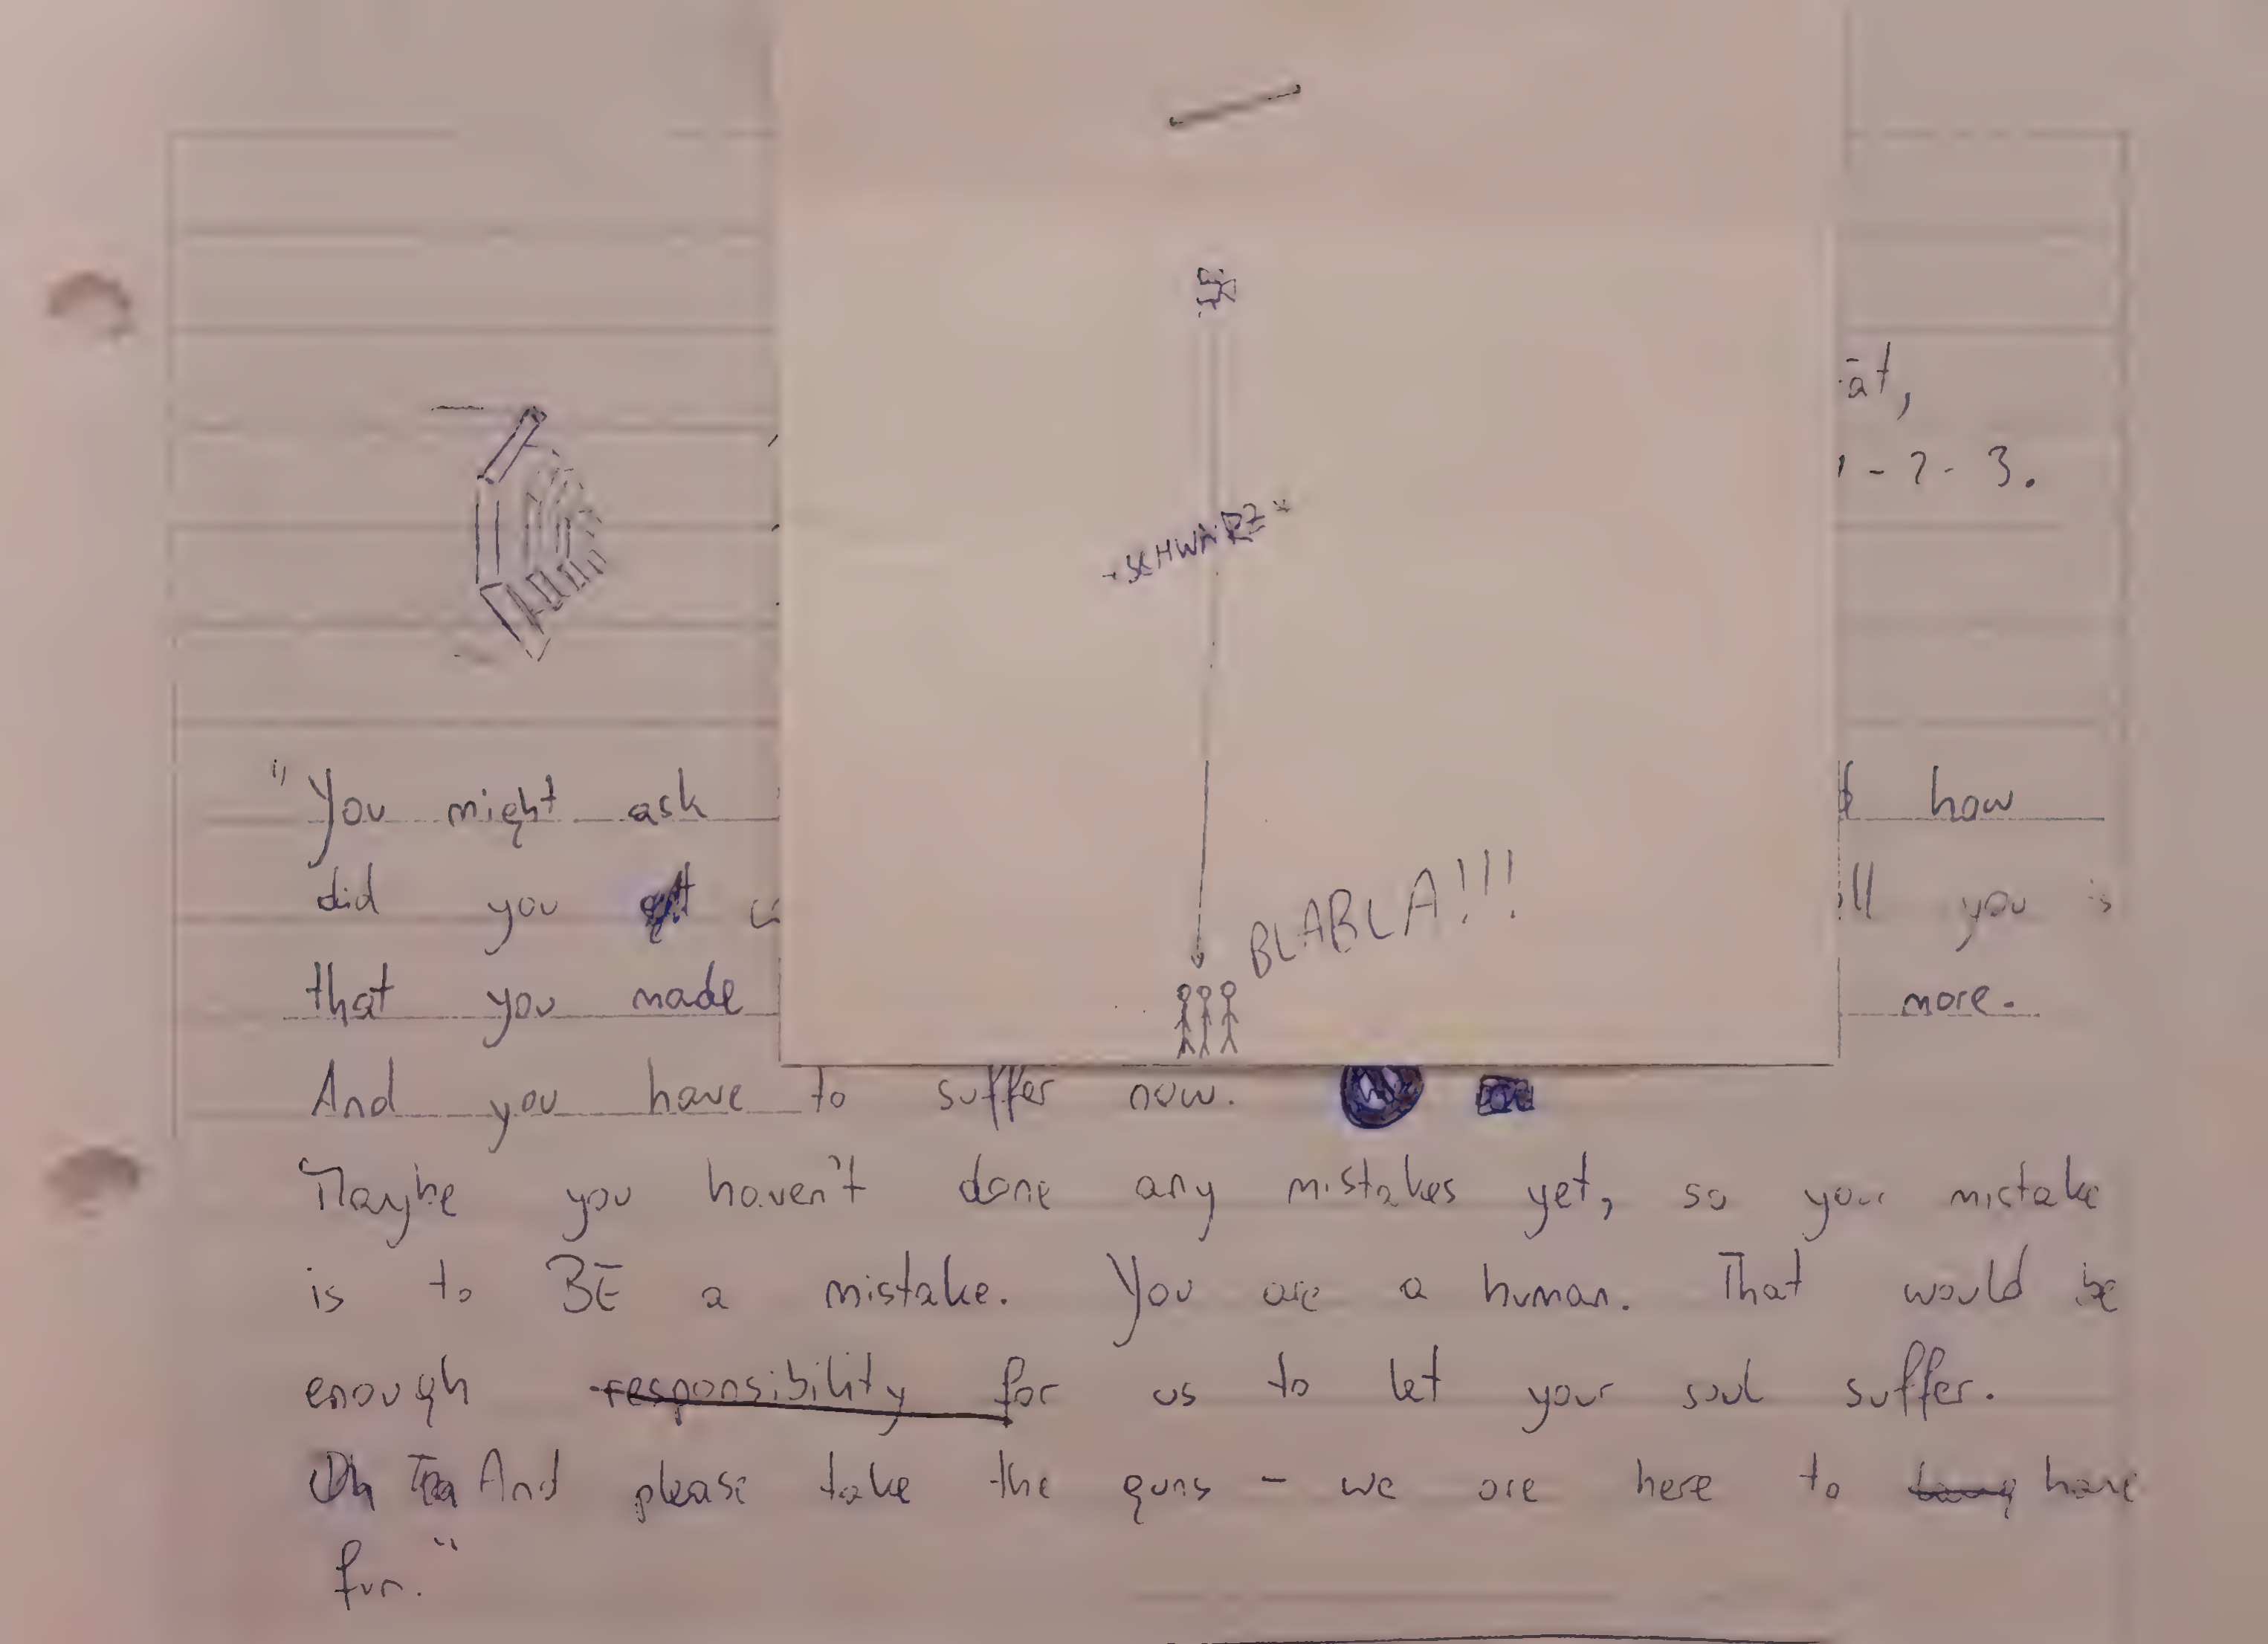 ät,
1-2-3.
"SCHWARZ"
"You might ask how
did you ll you is
that you made more.
BLABLA!!!
And you have to suffer now.
Maybe you haven't done any mistakes yet, so your mistake
is to BE a mistake. You are a human. That would be
enough responsibility for us to let your soul suffer.
Oh And please take the guns - we are here to have
fun."